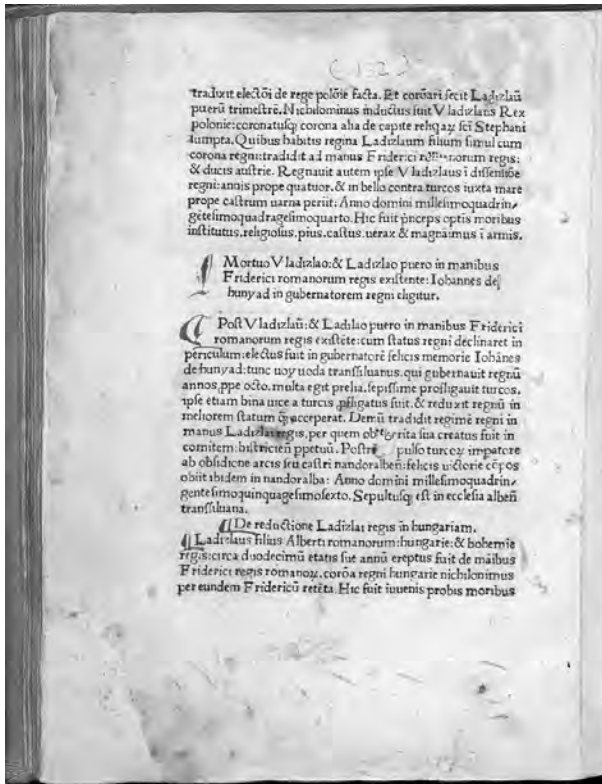 (132)
tradixit electõi de rege polõie facta. Et corõari fecit Ladizlaũ
puerũ trimestrẽ. Nichilominus inductus fuit Vladizlaus Rex
polonie: coronatusqꝫ corona alia de capite reliqaꝝ sc̃i Stephani
sumpta. Quibus habitis regina Ladizlaum filium simul cum
corona regni: tradidit ad manus Friderici romanorum regis:
& ducis austrie. Regnauit autem ipse Vladizlaus ĩ dissensiõe
regni: annis prope quatuor. & in bello contra turcos iuxta mare
prope castrum uarna periit: Anno domini millesimoquadrin⸗
gẽtesimoquadragesimoquarto. Hic fuit pñceps optis moribus
institutus. religiosus. pius. castus. uerax & magnaimus ĩ armis.
Mortuo Vladizlao: & Ladizlao puero in manibus
Friderici romanorum regis existente: Iohannes de
hunyad in gubernatorem regni eligitur.
Post Vladizlaũ: & Ladilao puero in manibus Friderici
romanorum regis existẽte: cum status regni declinaret in
periculum: electus fuit in gubernatorẽ felicis memorie Iohãnes
de hunyad: tunc uoyuoda transsiluanus. qui gubernauit regnũ
annos ꝓpe octo. multa egit prelia. sepissime profligauit turcos.
ipse etiam bina uice a turcis ꝓfligatus fuit. & reduxit regnũ in
meliorem statum qꝫ acceperat. Demũ tradidit regimẽ regni in
manus Ladizlai regis. per quem ob merita sua creatus fuit in
comitem: bistricieñ ꝑpetuũ. Postre pulso turcoꝝ impatore
ab obsidione arcis seu castri nandoralbeñ: felicis uictorie cõpos
obiit ibidem in nandoralba: Anno domini millesimoquadrin⸗
gentesimoquinquagesimosexto. Sepultusqꝫ est in ecclesia albeñ
transsiluana.
¶ De reductione Ladizlai regis in hungariam.
¶ Ladizlaus filius Alberti romanorum: hungarie: & bohemie
regis: circa duodecimũ etatis sue annũ ereptus fuit de mãibus
Friderici regis romanoꝝ. corõa regni hungarie nichilonimus
per eundem Fridericũ retẽta. Hic fuit iuuenis probis moribus